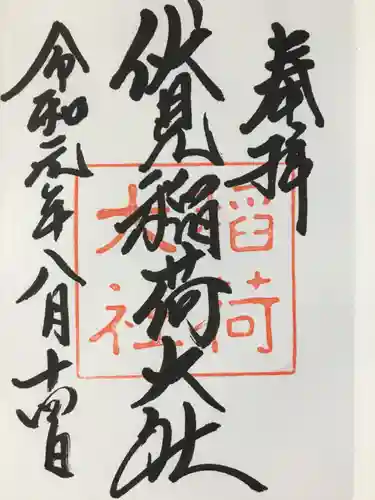 奉拝
伏見稲荷大社
令和元年八月十四日
稲荷
大社